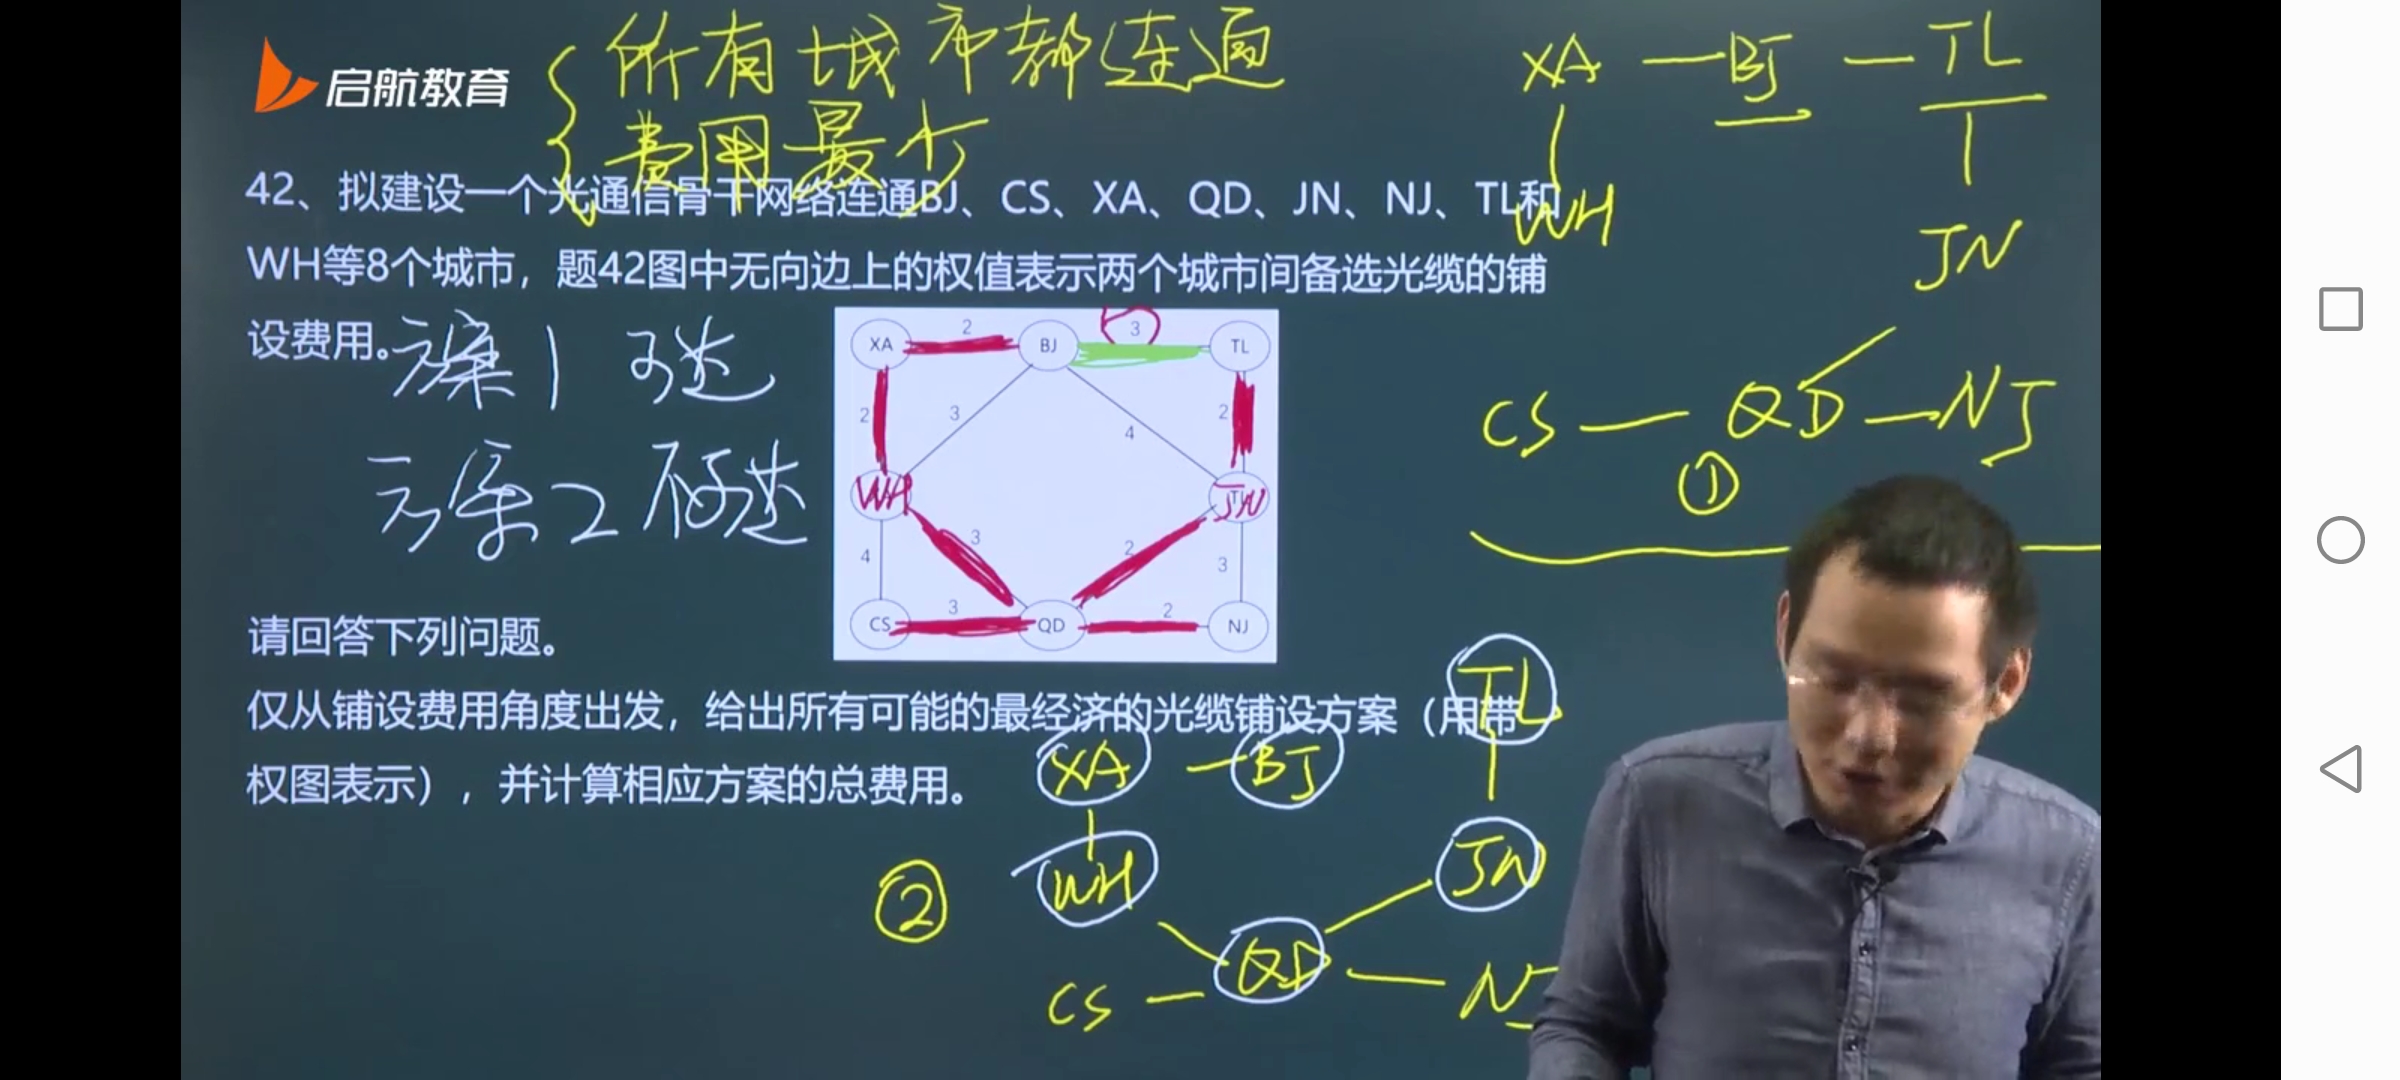 启航教育
所有城市都连通
费用最少
XA — BJ — TL
WH
JN
42、拟建设一个光通信骨干网络连通BJ、CS、XA、QD、JN、NJ、TL和
WH等8个城市，题42图中无向边上的权值表示两个城市间备选光缆的铺
设费用。
方案1 可达
方案2 不可达
XA 2 BJ 3 TL
2 3 4 2
WH JN
4 3 2 3
CS 3 QD 2 NJ
CS — QD — NJ
①
请回答下列问题。
仅从铺设费用角度出发，给出所有可能的最经济的光缆铺设方案（用带
权图表示），并计算相应方案的总费用。
TL
XA — BJ
② WH JN
CS — QD — NJ